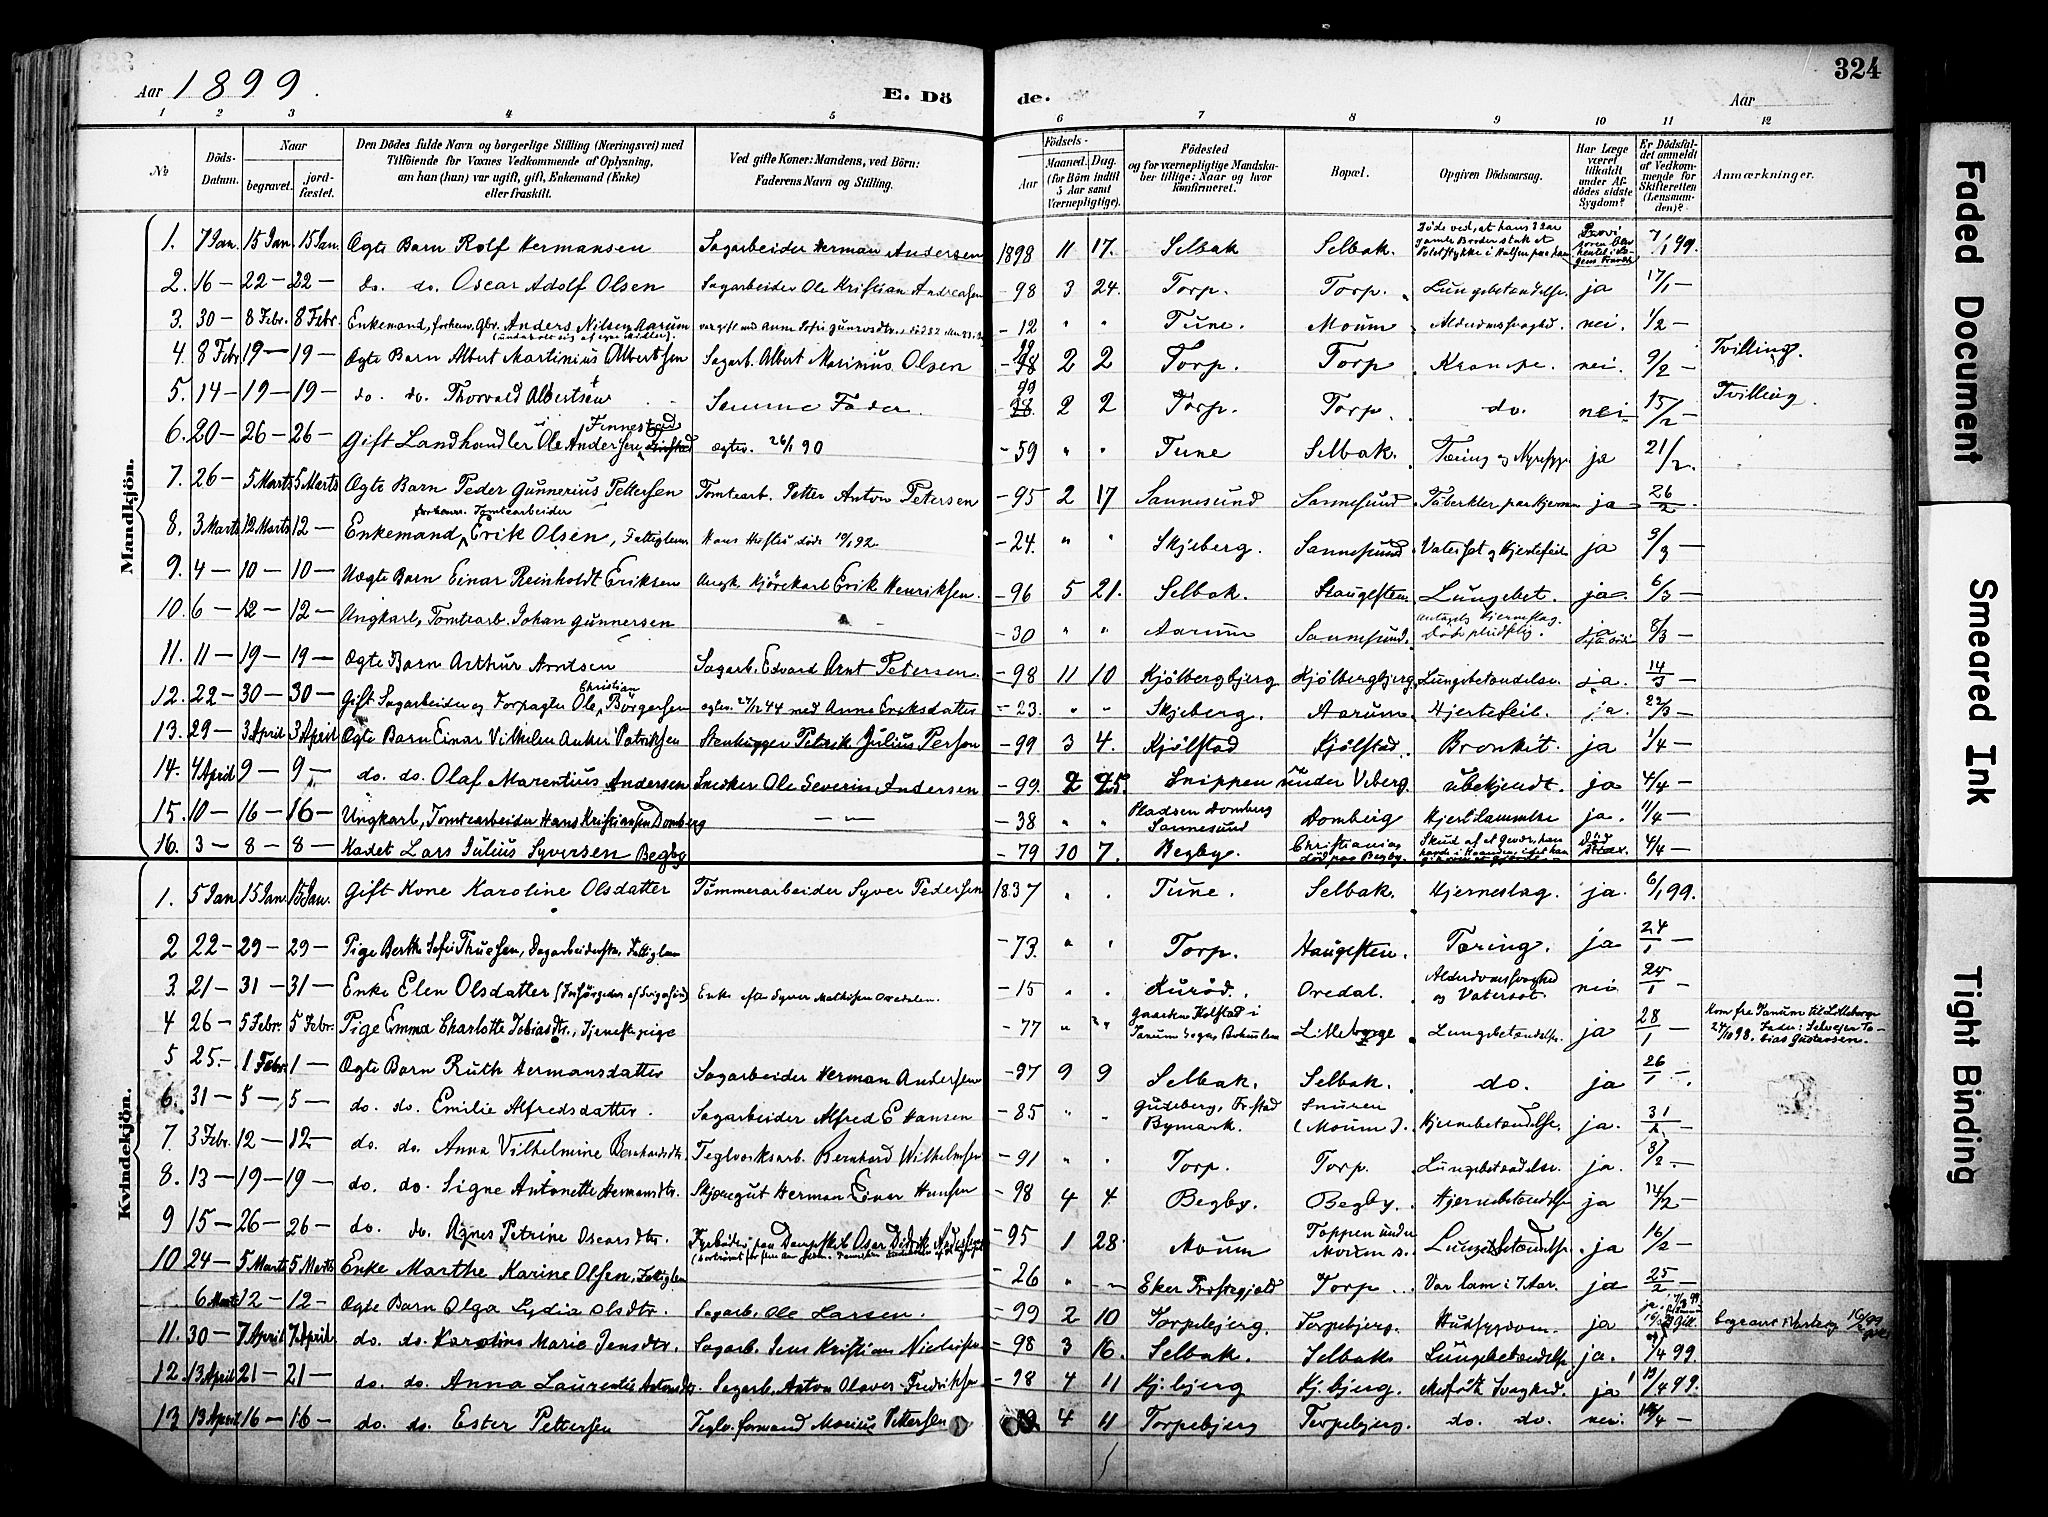 324
Aar 1899.
E. Dö
de.
Aar
1 2 3 4 5 6 7 8 9 10 11 12
№
Döds-Datum.
Naar
begravet.
jord-fæstet.
Den Dödes fulde Navn og borgerlige Stilling (Næringsvei) med
Tilföiende for Voxnes Vedkommende af Oplysning,
om han (hun) var ugift, gift, Enkemand (Enke)
eller fraskilt.
Ved gifte Koner: Mandens, ved Börn:
Faderens Navn og Stilling.
Födsels-
Aar
Maaned. Dag.
(for Börn indtil
5 Aar samt
Værnepligtige).
Födested
og for værnepligtige Mandska-
ber tillige: Naar og hvor
konfirmeret.
Bopæl.
Opgiven Dödsaarsag.
Har Læge
været
tilkaldt
under Af-
dödes sidste
Sygdom?
Er Dödsfal-
det anmeldt
af Vedkom-
mende for
Skifteretten
(Lensman-
den)?
Anmærkninger.
Mandkjön.
1. 7 Jan. 15 Jan 15 Jan. Ægte Barn Rolf Hermansen Sagarbeider Herman Andersen 1898 11 17. Selbak Selbak. 7/1 99.
2. 16 — 22 — 22 — do. do. Oscar Adolf Olsen Sagarbeider Ole Kristian Andreasen – 98 3 24. Torp. Torp. Lungebetændelse. ja 17/1 —
3. 30 — 8 Febr. 8 Febr. Enkemand, forhenv. Gbr. Anders Nilsen Aarum – 12 " " Tune. Moum Alderdomssvaghed. nei. 1/2 —
4. 8 Febr 19 — 19 — Ægte Barn Albert Martinius Albertsen Sagarb. Albert Marinius Olsen – 98 2 2 Torp. Torp Krampe. nei. 9/2 — Tvilling.
5. 14 — 19 — 19 — do. do. Thorvald Albertsen Samme Fader. 2 2 Torp. Torp. do. nei 15/2 — Tvilling.
6. 20 — 26 — 26 — Gift Landhandler Ole Andersen Finnestad ægtev. 26/1 90 – 59 " " Tune Selbak. Tæring og Nyresyge ja 21/2.
7. 26 — 5 Marts 5 Marts Ægte Barn Peder Gunnerius Pettersen Tomtearb. Petter Anton Petersen – 95 2 17 Sannesund Sannesund Tuberkler paa Hjernen ja 26/2 —
forhenv. Tomtearbeider
8. 3 Marts 12 Marts 12 — Enkemand Erik Olsen, Fattiglem Hans Hustru døde 19/1 92. – 24. " " Skjeberg. Sannesund Vatersot og Hjertefeil ja 5/3 —
9. 4 — 10 — 10 — Uægte Barn Einar Reinholdt Eriksen Ungk. Kjörekarl Erik Henriksen. – 96 5 21. Selbak. Haugesten. Lungebet. ja. 6/3 —
10. 6 — 12 — 12 — Ungkarl, Tomtearb. Johan Gunnersen – 30 " " Aarum Sannesund. 8/3 —
11. 11 — 19 — 19 — Ægte Barn Arthur Arntsen Sagarb. Edvard Arnt Petersen. – 98 11 10 Kjölbergbjerg Kjölbergbjerg Lungebetændelse. ja. 14/3
12. 22 — 30 — 30 — Gift Sagarbeider og Forpagter Ole Christian Borgersen ægtev. 27/12 44 med Anne Eriksdatter – 23. " " Skjeberg. Aarum. Hjertefeil. ja. 22/3 —
13. 29 — 3 April 3 April Ægte Barn Einar Vilhelm Anker Patriksen Stenhugger Petrik Julius Person – 99 3 4. Kjölstad Kjölstad. Bronkit. ja 1/4 —
14. 4 April 9 — 9 — do. do. Olaf Marentius Andersen Snedker Ole Severin Andersen – 99. 2 25. Snippen under Veberg. ubekjendt. ja 4/4 —
15. 10 — 16 — 16 — Ungkarl, Tomtearbeider Hans Kristiansen Domberg — " — – 38 " " Pladsen Domberg Sannesund Domberg Hjertelammelse ja. 11/4 —
16. 3 — 8 — 8 — Kadet Lars Julius Syversen Begby – 79 10 7. Begby. Christiania død paa Begby. 4/4 —
Kvindekjön.
1. 5 Jan 15 Jan. 15 Jan. Gift Kone Karoline Olsdatter Tømmerarbeider Syver Pedersen 1837 " " Tune. Selbak. Hjerneslag. ja. 6/1 99.
2 22 — 29 — 29 — Pige Berthe Sofie Thuesen, Dagarbeiderske, Fattiglem – 73. " " Torp. Haugesten. Tæring. ja 24/1 —
3. 21 — 31 — 31 — Enke Elen Olsdatter Enke efter Syver Mathisen Oredalen. – 15 " " Kuröd. Oredal. Alderdomssvaghed og Vatersot nei 25/1 —
4 26 — 5 Febr. 5 Febr. Pige Emma Charlotte Tobiasdtr., Tjenestepige – 77 " " Gaarden Kolstad i Tanum Sogn Bohuslen Lilleborge Lungebetændelse. ja 28/1 Kom fra Tanum til Lilleborge 24/10 98. Fader: Selveier Tobias Gustavsen.
5 25. – 1 Febr. 1 — Ægte Barn Ruth Hermansdatter Sagarbeider Herman Andersen – 97 9 9 Selbak. Selbak. do. ja 26/1 —
6. 31 — 5 — 5 — do. do. Emilie Alfredsdatter. Sagarbeider Alfred E Hansen – 85 " " Gudeberg, Fr.stad Bymark. Snuren (Moum). Hjernebetændelse. ja. 31/1
7. 3 Febr. 12 — 12 — do. do. Anna Vilhelmine Bernhardsdtr. Teglverksarb. Bernhard Wilhelmsen – 91 " " Torp. Torp. Lungebetændelse. ja. 8/2. —
8. 13 — 19 — 19 — do. do. Signe Antonette Hermansdtr. Skjøregut Herman Einar Hansen – 98 4 4 Begby. Begby. Hjernebetændelse ja 14/2 —
9 15 — 26 — 26 — do. do. Agnes Petrine Oscarsdtr. Fyrbøder paa Dampskib Oscar Didrik – 95 1 28. Moum Toppen under Lungebetændelse. ja 16/2 —
10 24 — 5 Marts 5 Marts Enke Marthe Karine Olsen, Fattiglem – 26 " — Eker Torp. Var lam i 7 Aar. ja 25/2 —
6 Marts 12 — 12 — Ægte Barn Olga Lydia Olsdtr. Sagarb. Ole Larsen. – 99 2 10 Torpebjerg. Torpebjerg. Hudsygdom. ja
11. 30 — 7 April 7 April do. do. Karoline Marie Jensdtr. Sagarb. Jens Kristian – 98 3 16. Selbak. Selbak Lungebetændelse ja. 4/4 99.
12. 13 April 21 — 21 — do. do. Anna Laurentse Antonsdtr. Sagarb. Anton Olaves Fredriksen – 98 4 11 Kj.bjerg Kj.bjerg. Medfødt Svaghed. ja 13/4 99.
13 13 April 16 — 16 — do. do. Ester Pettersen Teglv. formand Marius Pettersen 4 11 Torpebjerg Torpebjerg. do. do. nei. 14/4 —
Faded Document
Smeared Ink
Tight Binding